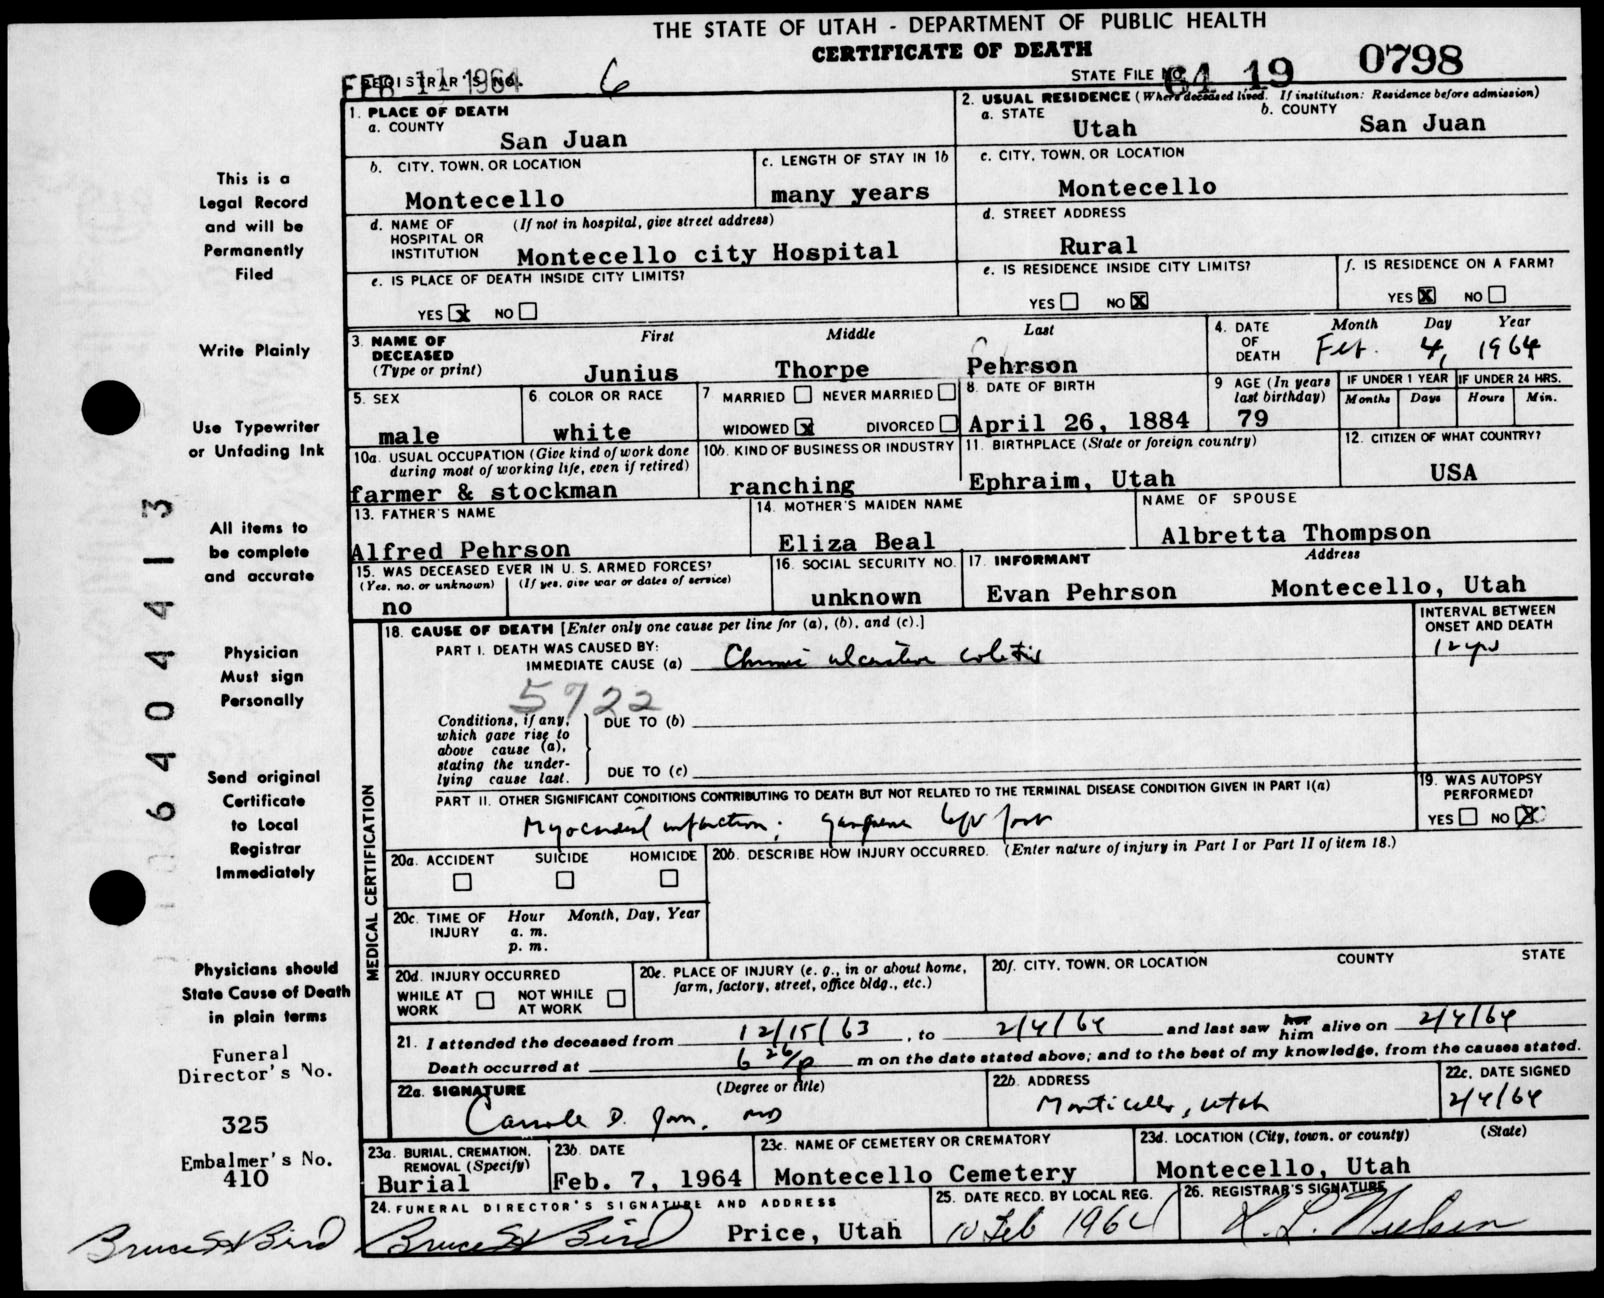 THE STATE OF UTAH - DEPARTMENT OF PUBLIC HEALTH
CERTIFICATE OF DEATH
FEB 11 1964
REGISTRAR'S NO. 6
STATE FILE NO. 64 19 0798
1. PLACE OF DEATH
a. COUNTY
San Juan
2. USUAL RESIDENCE (Where deceased lived. If institution: Residence before admission)
a. STATE
Utah
b. COUNTY
San Juan
b. CITY, TOWN, OR LOCATION
Montecello
c. LENGTH OF STAY IN 1b
many years
c. CITY, TOWN, OR LOCATION
Montecello
d. NAME OF HOSPITAL OR INSTITUTION
(If not in hospital, give street address)
Montecello city Hospital
d. STREET ADDRESS
Rural
e. IS PLACE OF DEATH INSIDE CITY LIMITS?
YES x NO
e. IS RESIDENCE INSIDE CITY LIMITS?
YES NO X
f. IS RESIDENCE ON A FARM?
YES X NO
3. NAME OF DECEASED
(Type or print)
First Middle Last
Junius Thorpe Pehrson
4. DATE OF DEATH
Month Day Year
Feb. 4, 1964
5. SEX
male
6. COLOR OR RACE
white
7 MARRIED NEVER MARRIED
WIDOWED x DIVORCED
8. DATE OF BIRTH
April 26, 1884
9 AGE (In years last birthday)
79
IF UNDER 1 YEAR
Months Days
IF UNDER 24 HRS.
Hours Min.
10a. USUAL OCCUPATION (Give kind of work done during most of working life, even if retired)
farmer & stockman
10b. KIND OF BUSINESS OR INDUSTRY
ranching
11. BIRTHPLACE (State or foreign country)
Ephraim, Utah
12. CITIZEN OF WHAT COUNTRY?
USA
13. FATHER'S NAME
Alfred Pehrson
14. MOTHER'S MAIDEN NAME
Eliza Beal
NAME OF SPOUSE
Albretta Thompson
15. WAS DECEASED EVER IN U. S. ARMED FORCES?
(Yes, no, or unknown) (If yes, give war or dates of service)
no
16. SOCIAL SECURITY NO.
unknown
17. INFORMANT Address
Evan Pehrson Montecello, Utah
MEDICAL CERTIFICATION
18. CAUSE OF DEATH [Enter only one cause per line for (a), (b), and (c).]
INTERVAL BETWEEN ONSET AND DEATH
PART I. DEATH WAS CAUSED BY:
IMMEDIATE CAUSE (a) Chronic ulcerative colitis
12 yrs
5722
Conditions, if any, which gave rise to above cause (a), stating the underlying cause last.
DUE TO (b)
DUE TO (c)
PART II. OTHER SIGNIFICANT CONDITIONS CONTRIBUTING TO DEATH BUT NOT RELATED TO THE TERMINAL DISEASE CONDITION GIVEN IN PART I(a)
Myocardial infarction; gangrene left foot
19. WAS AUTOPSY PERFORMED?
YES NO X
20a. ACCIDENT SUICIDE HOMICIDE
20b. DESCRIBE HOW INJURY OCCURRED. (Enter nature of injury in Part I or Part II of item 18.)
20c. TIME OF INJURY
Hour Month, Day, Year
a. m.
p. m.
20d. INJURY OCCURRED
WHILE AT WORK NOT WHILE AT WORK
20e. PLACE OF INJURY (e. g., in or about home, farm, factory, street, office bldg., etc.)
20f. CITY, TOWN, OR LOCATION COUNTY STATE
21. I attended the deceased from 12/15/63, to 2/4/64 and last saw her him alive on 2/4/64
Death occurred at 6 26/p m on the date stated above; and to the best of my knowledge, from the causes stated.
22a. SIGNATURE (Degree or title)
MD
22b. ADDRESS
Monticello, Utah
22c. DATE SIGNED
2/4/64
23a. BURIAL, CREMATION, REMOVAL (Specify)
Burial
23b. DATE
Feb. 7, 1964
23c. NAME OF CEMETERY OR CREMATORY
Montecello Cemetery
23d. LOCATION (City, town, or county) (State)
Montecello, Utah
24. FUNERAL DIRECTOR'S SIGNATURE AND ADDRESS
Bruce H Bird Price, Utah
25. DATE RECD. BY LOCAL REG.
10 Feb 1964
26. REGISTRAR'S SIGNATURE
K. L. Nielson
This is a
Legal Record
and will be
Permanently
Filed
Write Plainly
Use Typewriter
or Unfading Ink
All items to
be complete
and accurate
Physician
Must sign
Personally
Send original
Certificate
to Local
Registrar
Immediately
Physicians should
State Cause of Death
in plain terms
Funeral
Director's No.
325
Embalmer's No.
410
Bruce H Bird
6404413